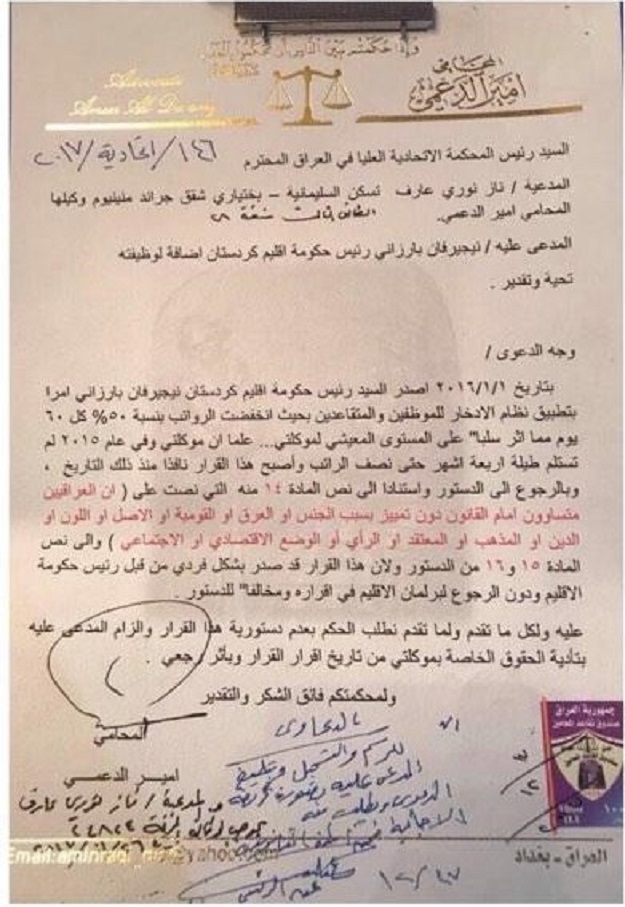 وإذا حكمتم بين الناس أن تحكموا بالعدل
المحامي
امير الدعمي
Advocate
١٤٦/اتحادية/٢٠١٧
السيد رئيس المحكمة الاتحادية العليا في العراق المحترم
المدعية / ناز نوري عارف تسكن السليمانية – بختياري شقق جراند ملينيوم وكيلها
المحامي امير الدعمي. الطابق الثالث شقة ٢٨
المدعى عليه / نيجيرفان بارزاني رئيس حكومة اقليم كردستان اضافة لوظيفته
تحية وتقدير .
وجه الدعوى /
بتاريخ ٢٠١٦/١/١ اصدر السيد رئيس حكومة اقليم كردستان نيجيرفان بارزاني امرا
بتطبيق نظام الادخار للموظفين والمتقاعدين بحيث انخفضت الرواتب بنسبة ٥٠% كل ٦٠
يوم مما اثر سلبا" على المستوى المعيشي لموكلتي... علما ان موكلتي وفي عام ٢٠١٥ لم
تستلم طيلة اربعة اشهر حتى نصف الراتب وأصبح هذا القرار نافذا منذ ذلك التاريخ ،
وبالرجوع الى الدستور واستنادا الى نص المادة ١٤ منه التي نصت على ( ان العراقيين
متساوون امام القانون دون تمييز بسبب الجنس او العرق او القومية او الاصل او اللون او
الدين او المذهب او المعتقد او الرأي أو الوضع الاقتصادي او الاجتماعي ) والى نص
المادة ١٥ و١٦ من الدستور ولان هذا القرار قد صدر بشكل فردي من قبل رئيس حكومة
الاقليم ودون الرجوع لبرلمان الاقليم في اقراره ومخالفا" للدستور .
عليه ولكل ما تقدم ولما تقدم نطلب الحكم بعدم دستورية هذا القرار والزام المدعى عليه
بتأدية الحقوق الخاصة بموكلتي من تاريخ اقرار القرار وبأثر رجعي .
ولمحكمتكم فائق الشكر والتقدير
المحامي
امير الدعمي
الدعاوى
للرسم والتسجيل وتبليغ
المدعى عليه بصورة من عريضة
الدعوى ويطلب منه
الاجابة
جمهورية العراق
صندوق تقاعد المحامين
العراق - بغداد